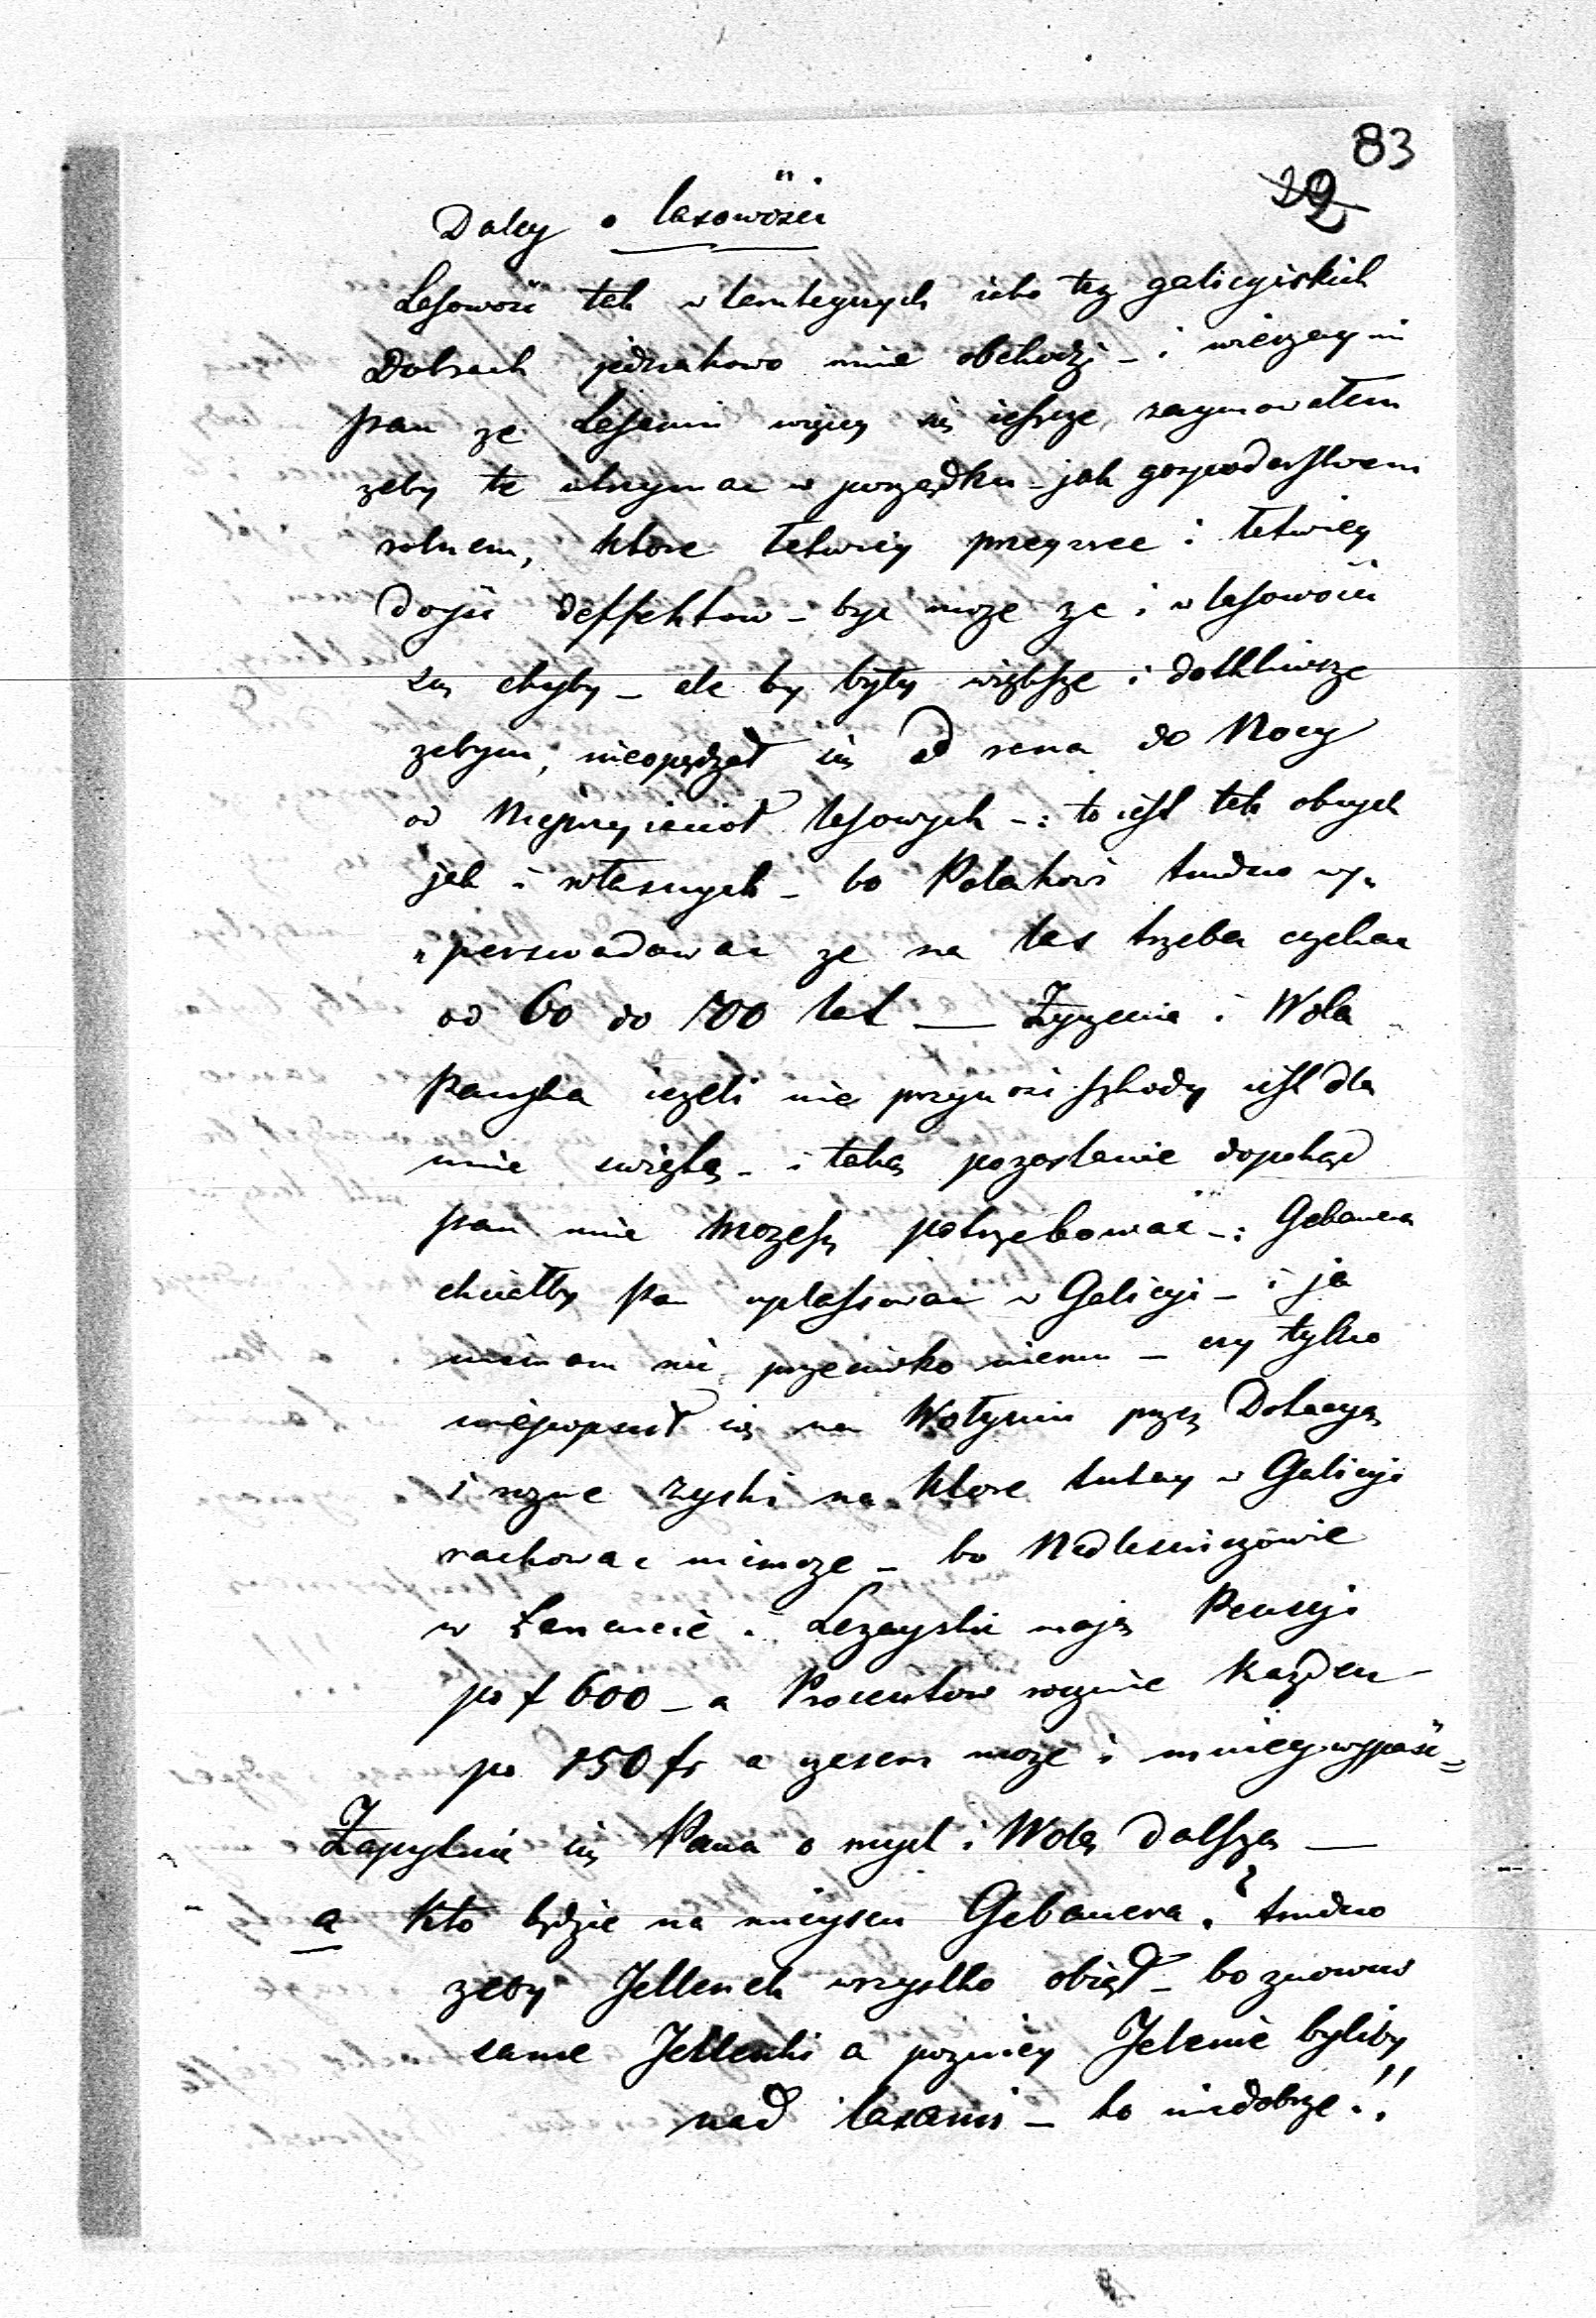 83
22
Daley o lasowości
Lasowość tak w tamteyszych iako też galicyiskich
Dobrach jednakowo mnie obchodzi - i wierzay mi
Pan ze Lasami więcey się ieszcze zaymowałem
zeby te utrzymac w porządku - jak gospodarstwem
rolnem, ktore łatwiey przeyzrec i łatwiey
doyść deffektow - byc moze ze i w lasowości
są chyby - ale by były większe i dotkliwsze
zebym, nieopędzał się od rana do Nocy
od Nieprzyiaciół lasowych -: to iest tak obcych
jak i własnych - bo Polakowi trudno wy„
„perswadowac ze na las trzeba czekac
od 60 do 100 lat — Życzenie i Wola
Pańska iezeli nie przynosi szkody iest dla
mnie swiętą - i taką pozostanie dopokąd
Pan mnie mozesz potrzebować -: Gebauera
chciałby Pan uplassowac w Galicyi - i ja
niemam nic przeciwko niemu - czy tylko
niepopsuł się na Wołyniu przez Dotacyą
i rozne zyski na ktore tutay w Galicyi
rachowac niemoze - bo Nadlesniczowie
w Łancucie i Lezaysku mają Pensyi
po f 600 - a Procentow rocznie Kazden
po 150 fr a czasem moze i mniey wypaść =
Zapytuię się Pana o mysl i Wolą dalszą —
a Kto będzie na mieyscu Gebauera? trudno
zeby Jellenek wszystko obiął - bo znowu
same Jellenki a pozniey Jelenie byliby
nad lasami - to niedobrze!!